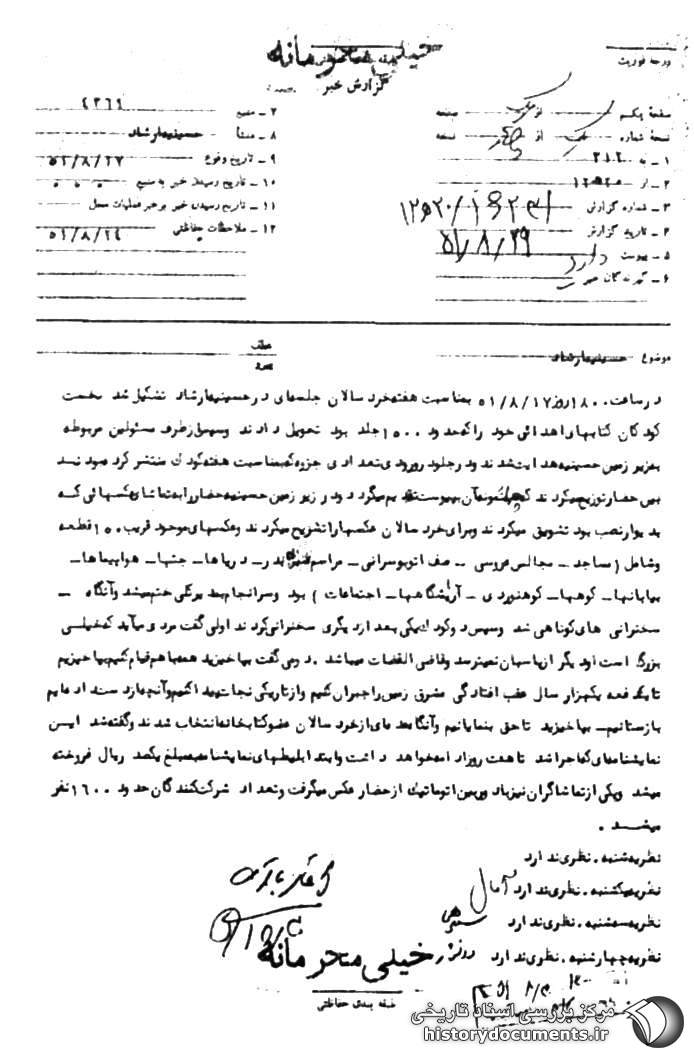 خیلی محرمانه
درجه فوریت
گزارش خبر
صفحهٔ یکم از صفحه
نسخهٔ شماره از نسخه
۱ ـ به ۳۱۲
۲ ـ از
۳ ـ شماره گزارش
۴ ـ تاریخ گزارش ۵۱/۸/۲۹
۵ ـ پیوست دارد
۶ ـ گیرندگان خبر
۷ ـ منبع
۸ ـ منشأ حسینیه‌ارشاد
۹ ـ تاریخ وقوع ۵۱/۸/۱۷
۱۰ ـ تاریخ رسیدن خبر به منبع
۱۱ ـ تاریخ رسیدن خبر برهبر عملیات محل
۱۲ ـ ملاحظات حفاظتی ۵۱/۸/۲۴
موضوع حسینیه‌ارشاد
عطف
درساعت ۱۸۰۰ روز ۵۱/۸/۱۷ بمناسبت هفته‌خردسالان جلسه‌ای درحسینیه‌ارشاد تشکیل شد نخست
کودکان کتابهای اهدائی خود راکه‌حدود ۱۵۰۰ جلد بود تحویل دادند وسپس‌ازطرف مسئولین مربوطه
به‌زیرزمین‌حسینیه‌هدایت‌شدند ودرجلود رورودی‌تعدادی جزوه‌که‌بمناسبت هفته‌کودك منتشر کرده‌بودنـد
بین‌حضارتوزیع‌میکردند که‌یك‌نمونه‌آن بپیوست‌تقدیم‌میگردد ودر زیرزمین‌حسینیه‌حضاررابه‌تماشای‌عکسهائی کـه
بدیوارنصب بود تشویق میکردند وبرای‌خردسالان عکسهاراتشریح‌میکردند وعکسهای‌موجود قریب ۱۵۰ قطعه
وشامل (مساجد ـ مجالس‌عروسی ـ صف اتوبوسرانی ـ مراسم ـ دریاها ـ جتها ـ هواپیماها ـ
بیابانها ـ کوهها ـ کوهنوردی ـ آزمایشگاهها ـ اجتماعات) بود وسرانجام‌بعدبزرگی‌ختم‌میشد وآنگاه ـ
سخنرانی های‌کوتاهی شد وسپس‌دوکودك‌یکی‌بعدازدیگری سخنرانی‌کردند اولی‌گفت مردی‌میآید که‌خیلـی
بزرگ است‌اودیگر ازپاسبان نمیترسد وقاضی‌القضات میباشد . دومی‌گفت بپاخیزید همه‌باهم‌قیام‌کنیم‌بپاخیزیم
تایکدفعه یکهزار سال عقب افتادگی مشرق زمین‌راجبران‌کنیم وازتاریکی نجات‌پیداکنیم‌وآنچه‌ازدست داده‌ایم
بازستانیم ـ بپاخیزید تاحق بنمایانیم وآنگاه‌عده‌ای‌ازخردسالان عضوکتابخانه‌انتخاب شدند وگفته‌شد ایـن
نمایشنامه‌ای‌که‌اجراشد تاهفت روزادامه‌خواهد داشت وابتدابلیطهای‌نمایشنامه‌بمبلغ‌یکصد ریال فروخته
میشد ویکی‌ازتماشاگران‌نیزبادوربین‌اتوماتیك‌ازحضار عکس‌میگرفت وتعداد شرکت‌کنندگان‌حدود ۱۶۰۰ نفر
میشـد .
نظریه‌شنبه . نظری‌ندارد
نظریه‌یکشنبه . نظری‌ندارد آمال
نظریه‌سه‌شنبه . نظری‌ندارد
نظریه‌چهارشنبه . نظری‌ندارد
خیلی محرمانه
طبقه بندی حفاظتی
مرکز بررسی اسناد تاریخی
historydocuments.ir